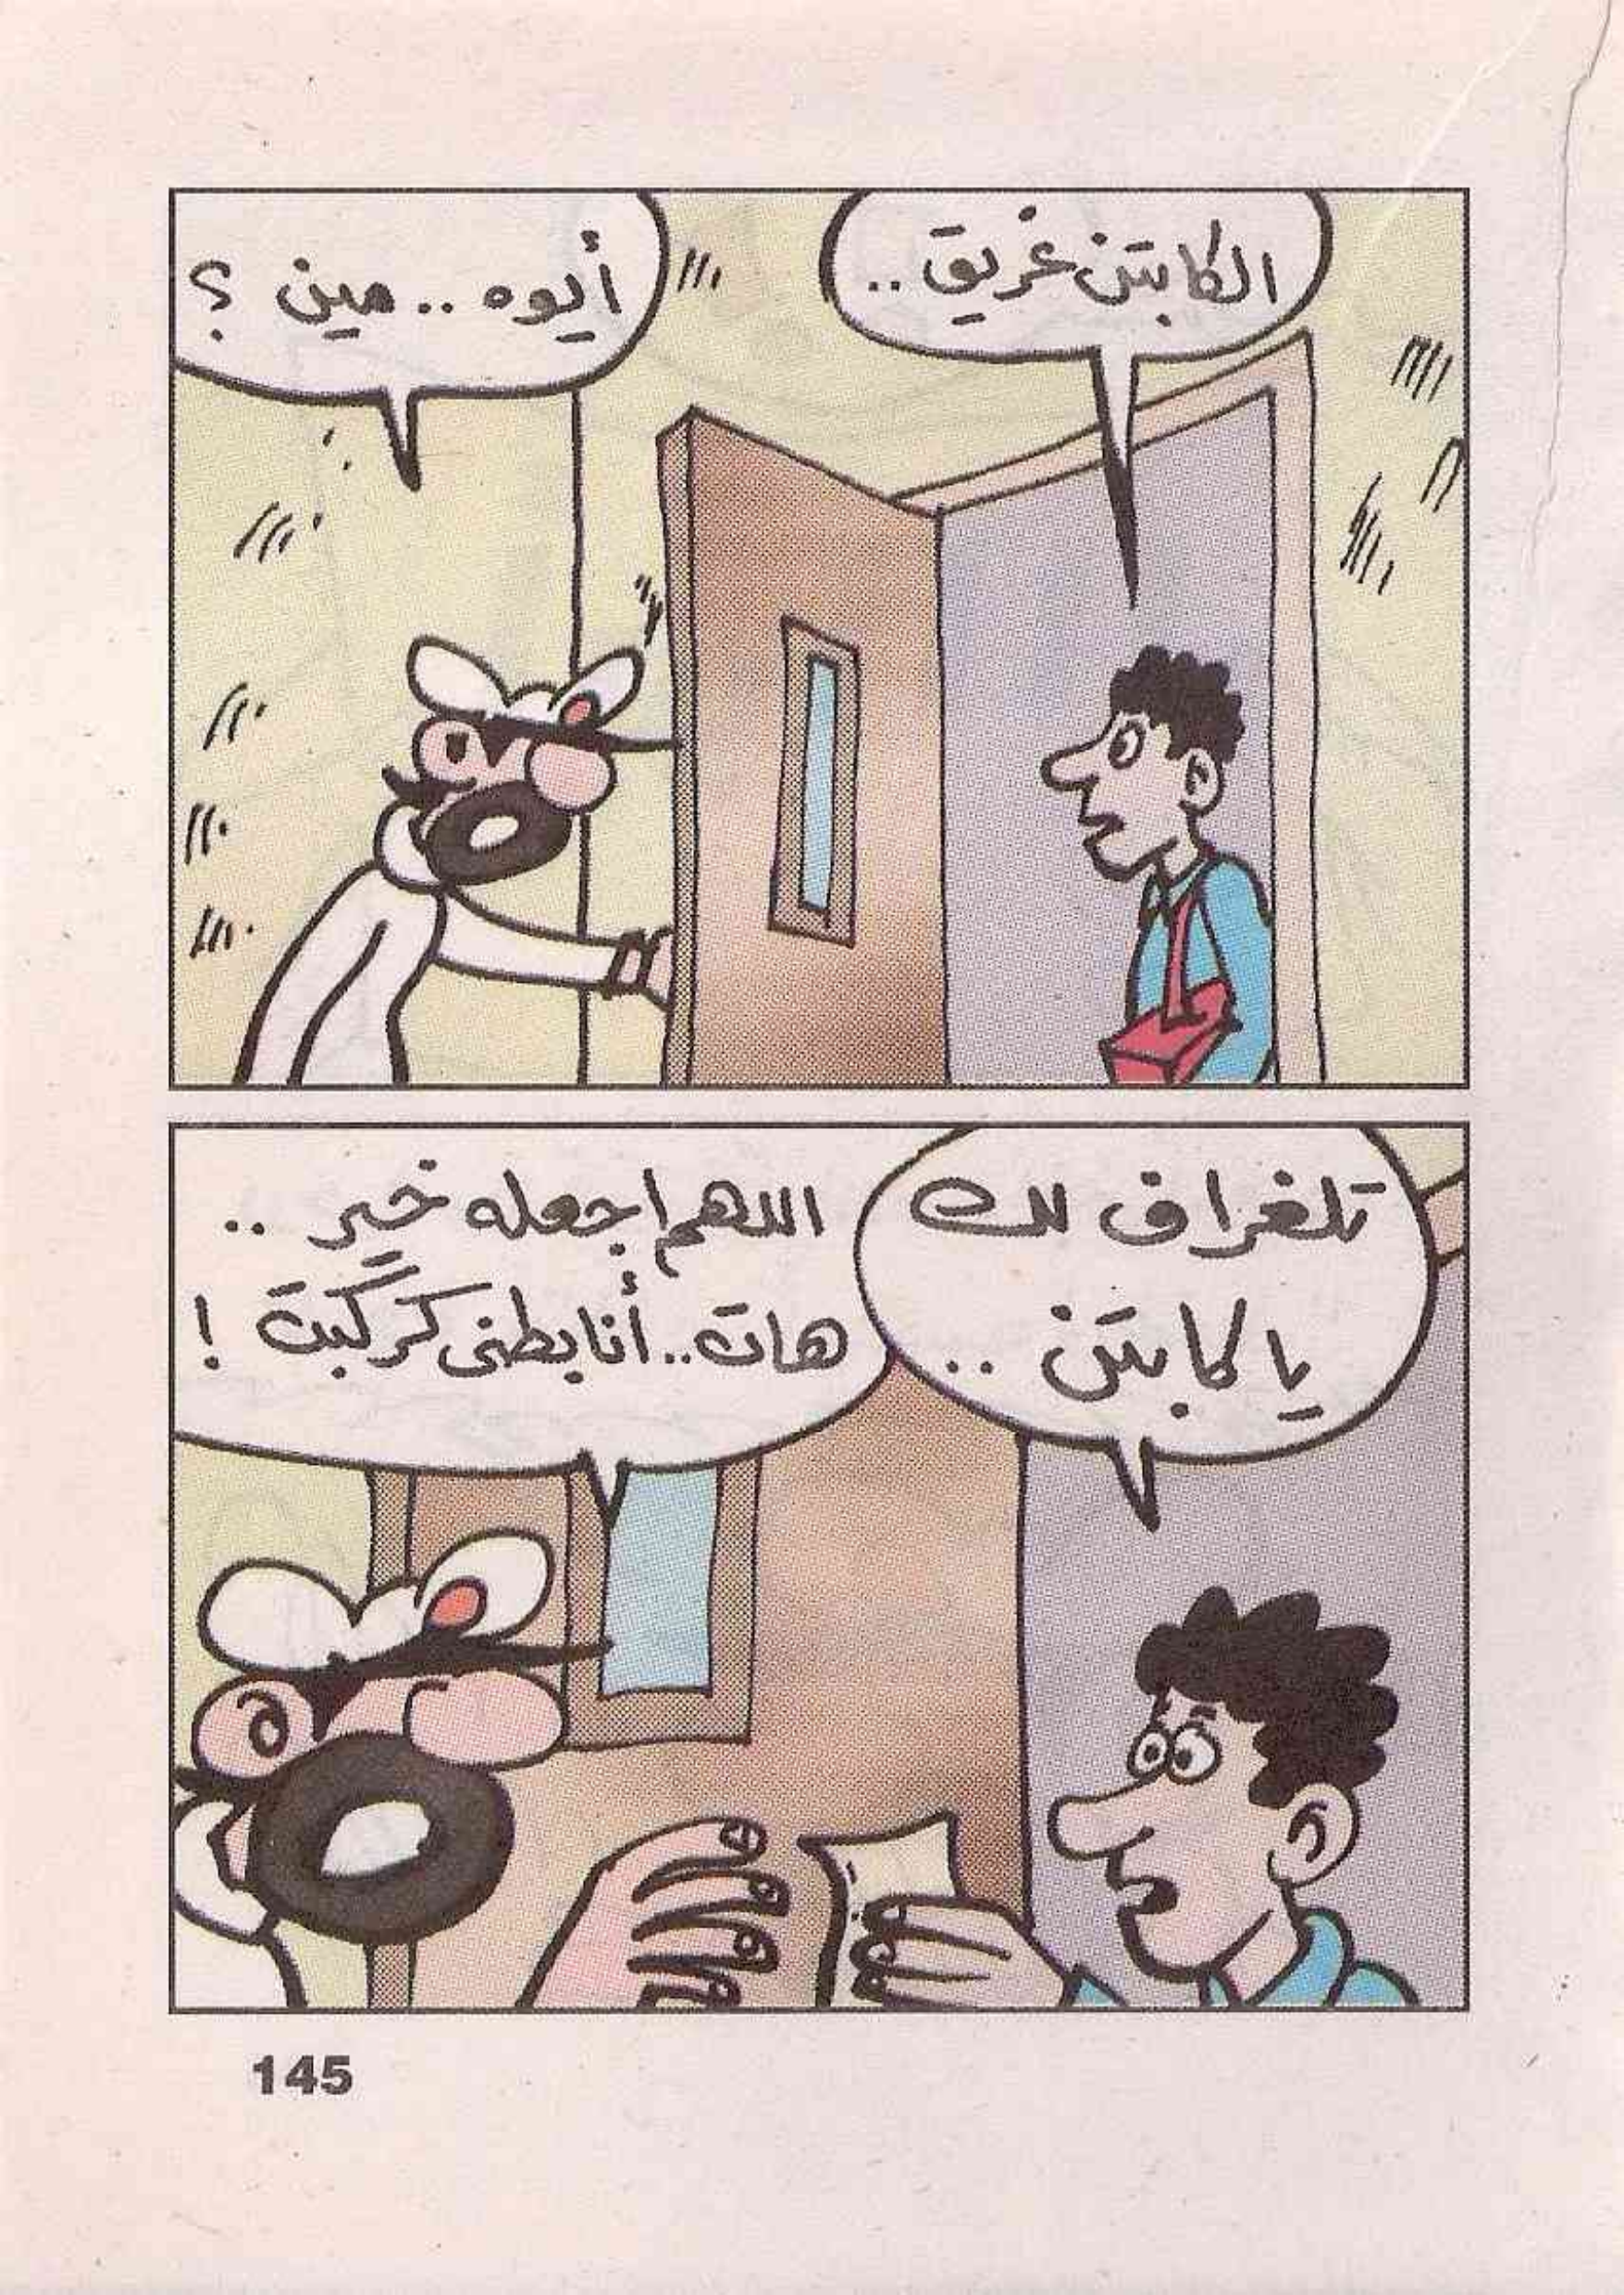 الكابتن غريق..
أيوه.. مين ؟
تلغراف لك
يا كابتن ..
اللهم اجعله خير ..
هات.. أنا بطنى كركبت !
145